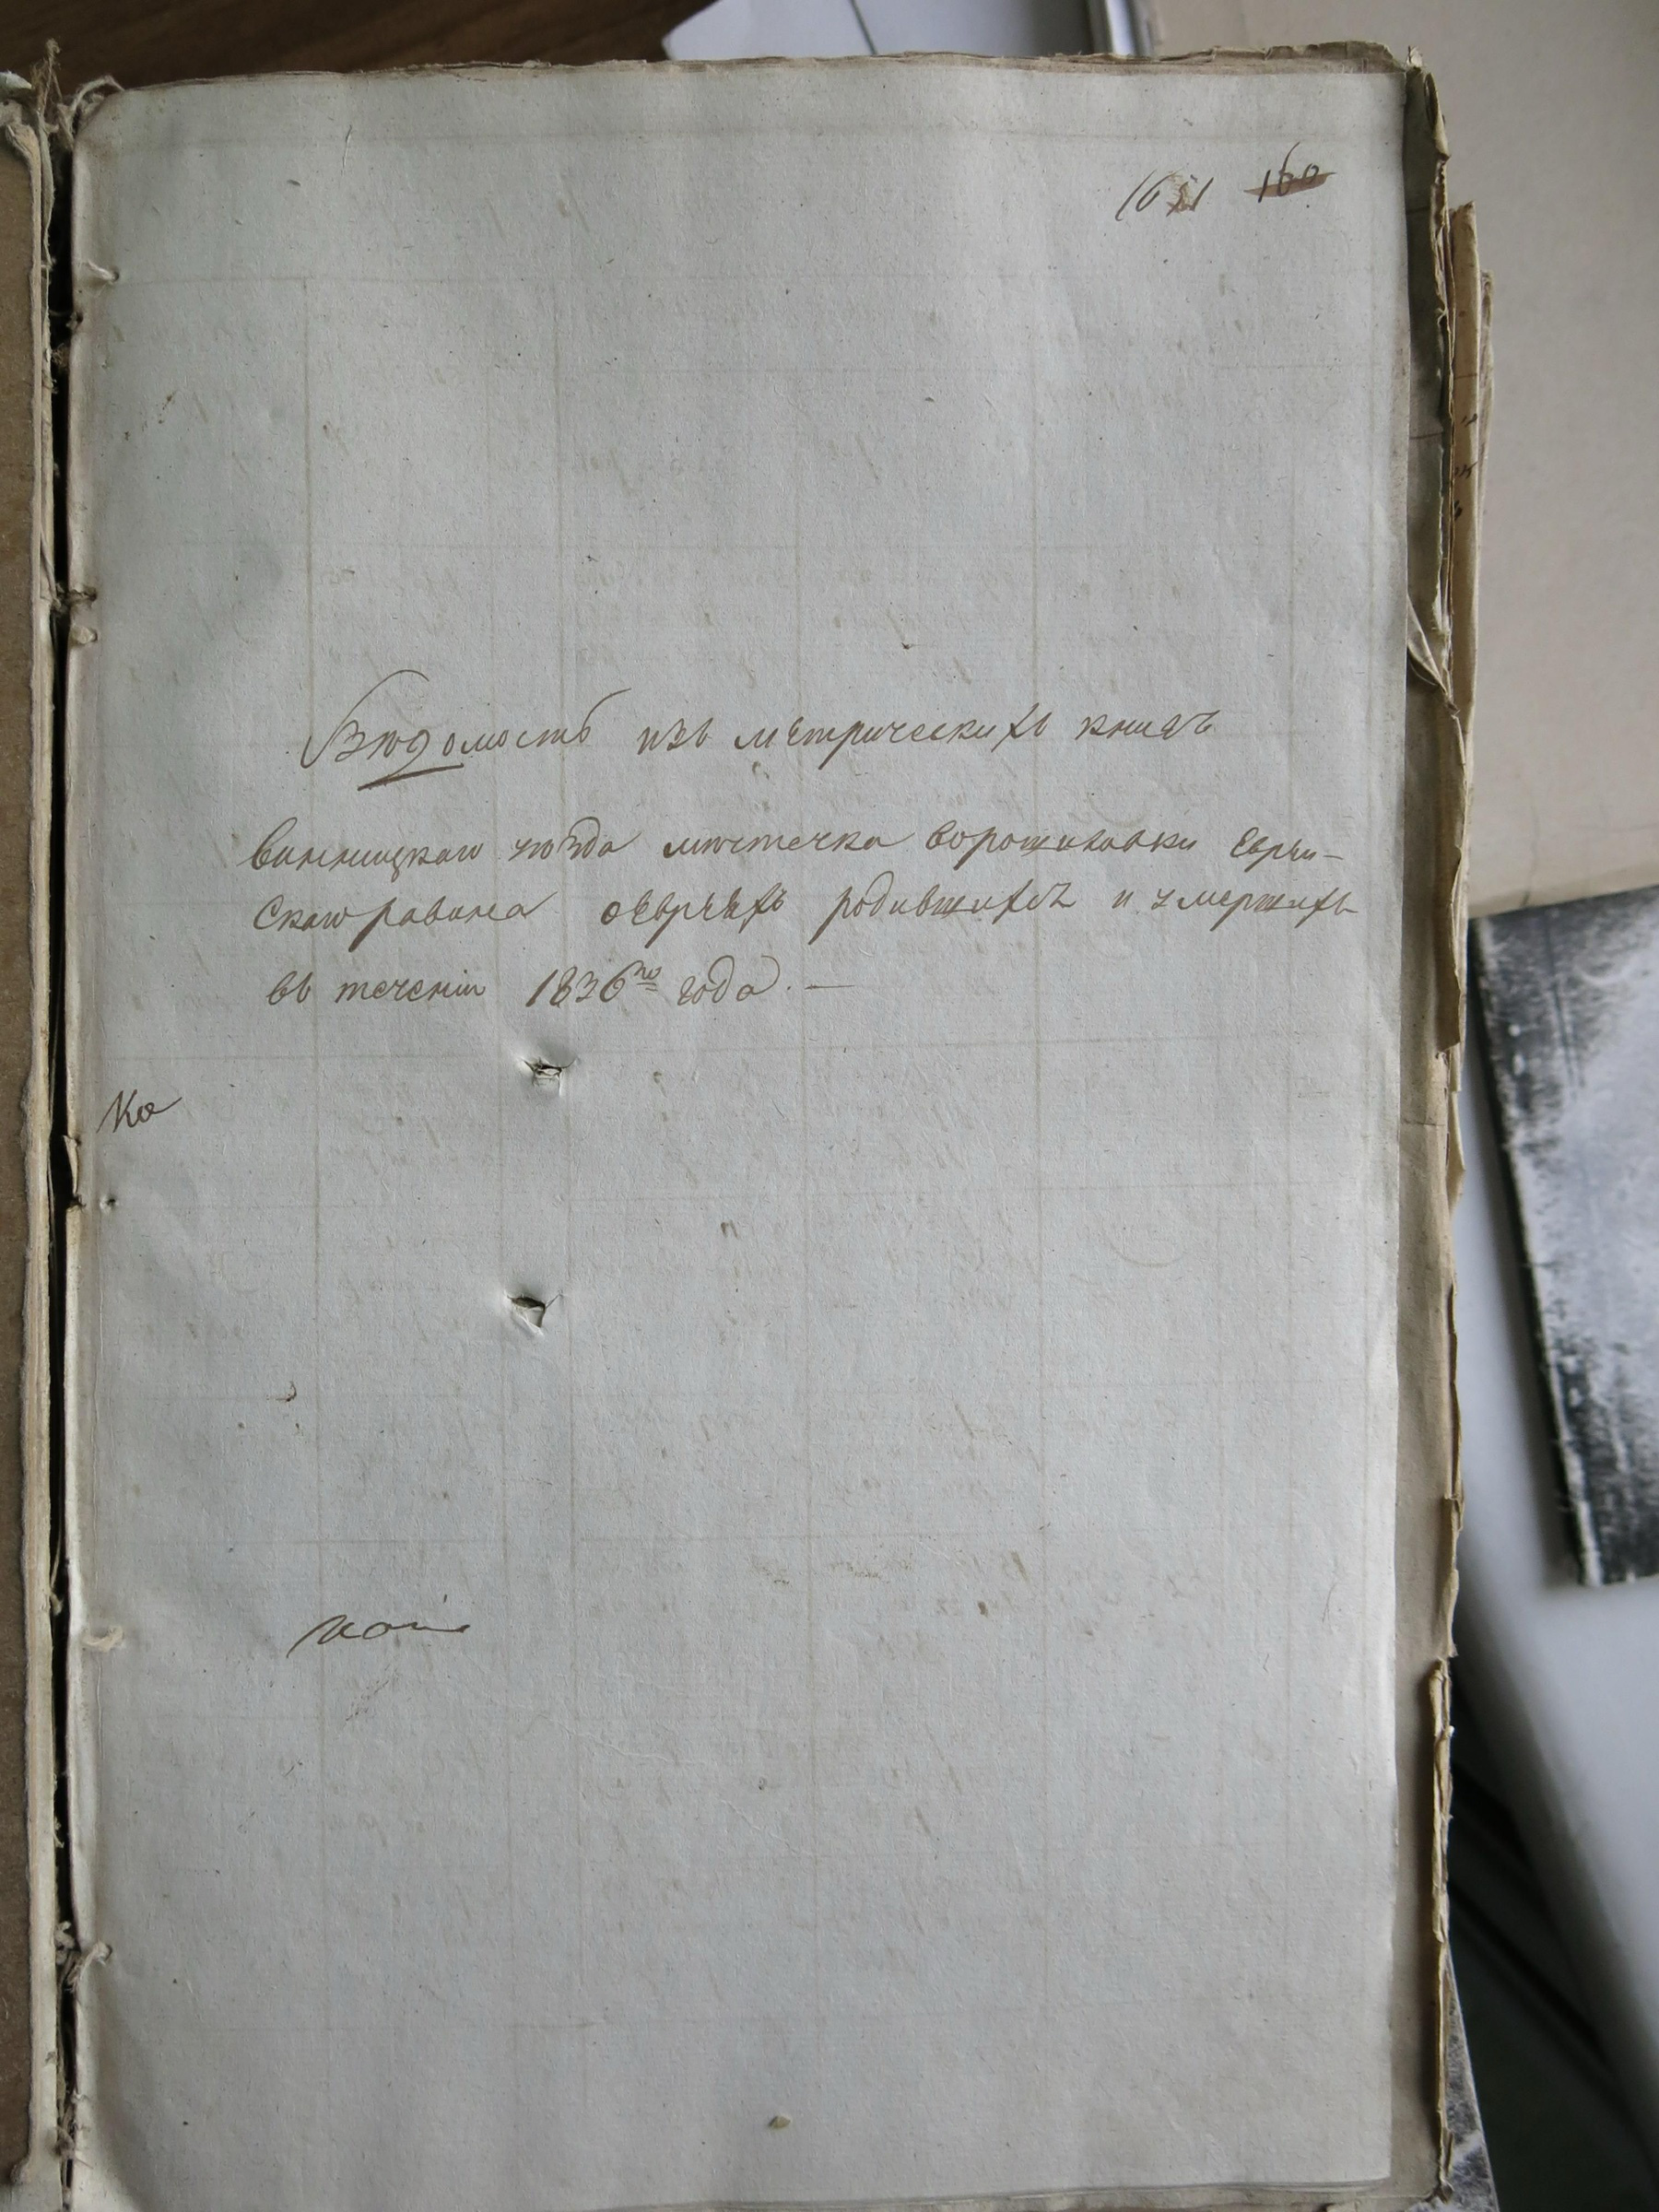 160
Вѣдомость изъ метрическихъ книгъ
Винницкаго уѣзда мѣстечка Ворошиловки Еврей-
скаго равина оевреяхъ родившихся и умершихъ
въ теченіи 1836го года. —
Ко